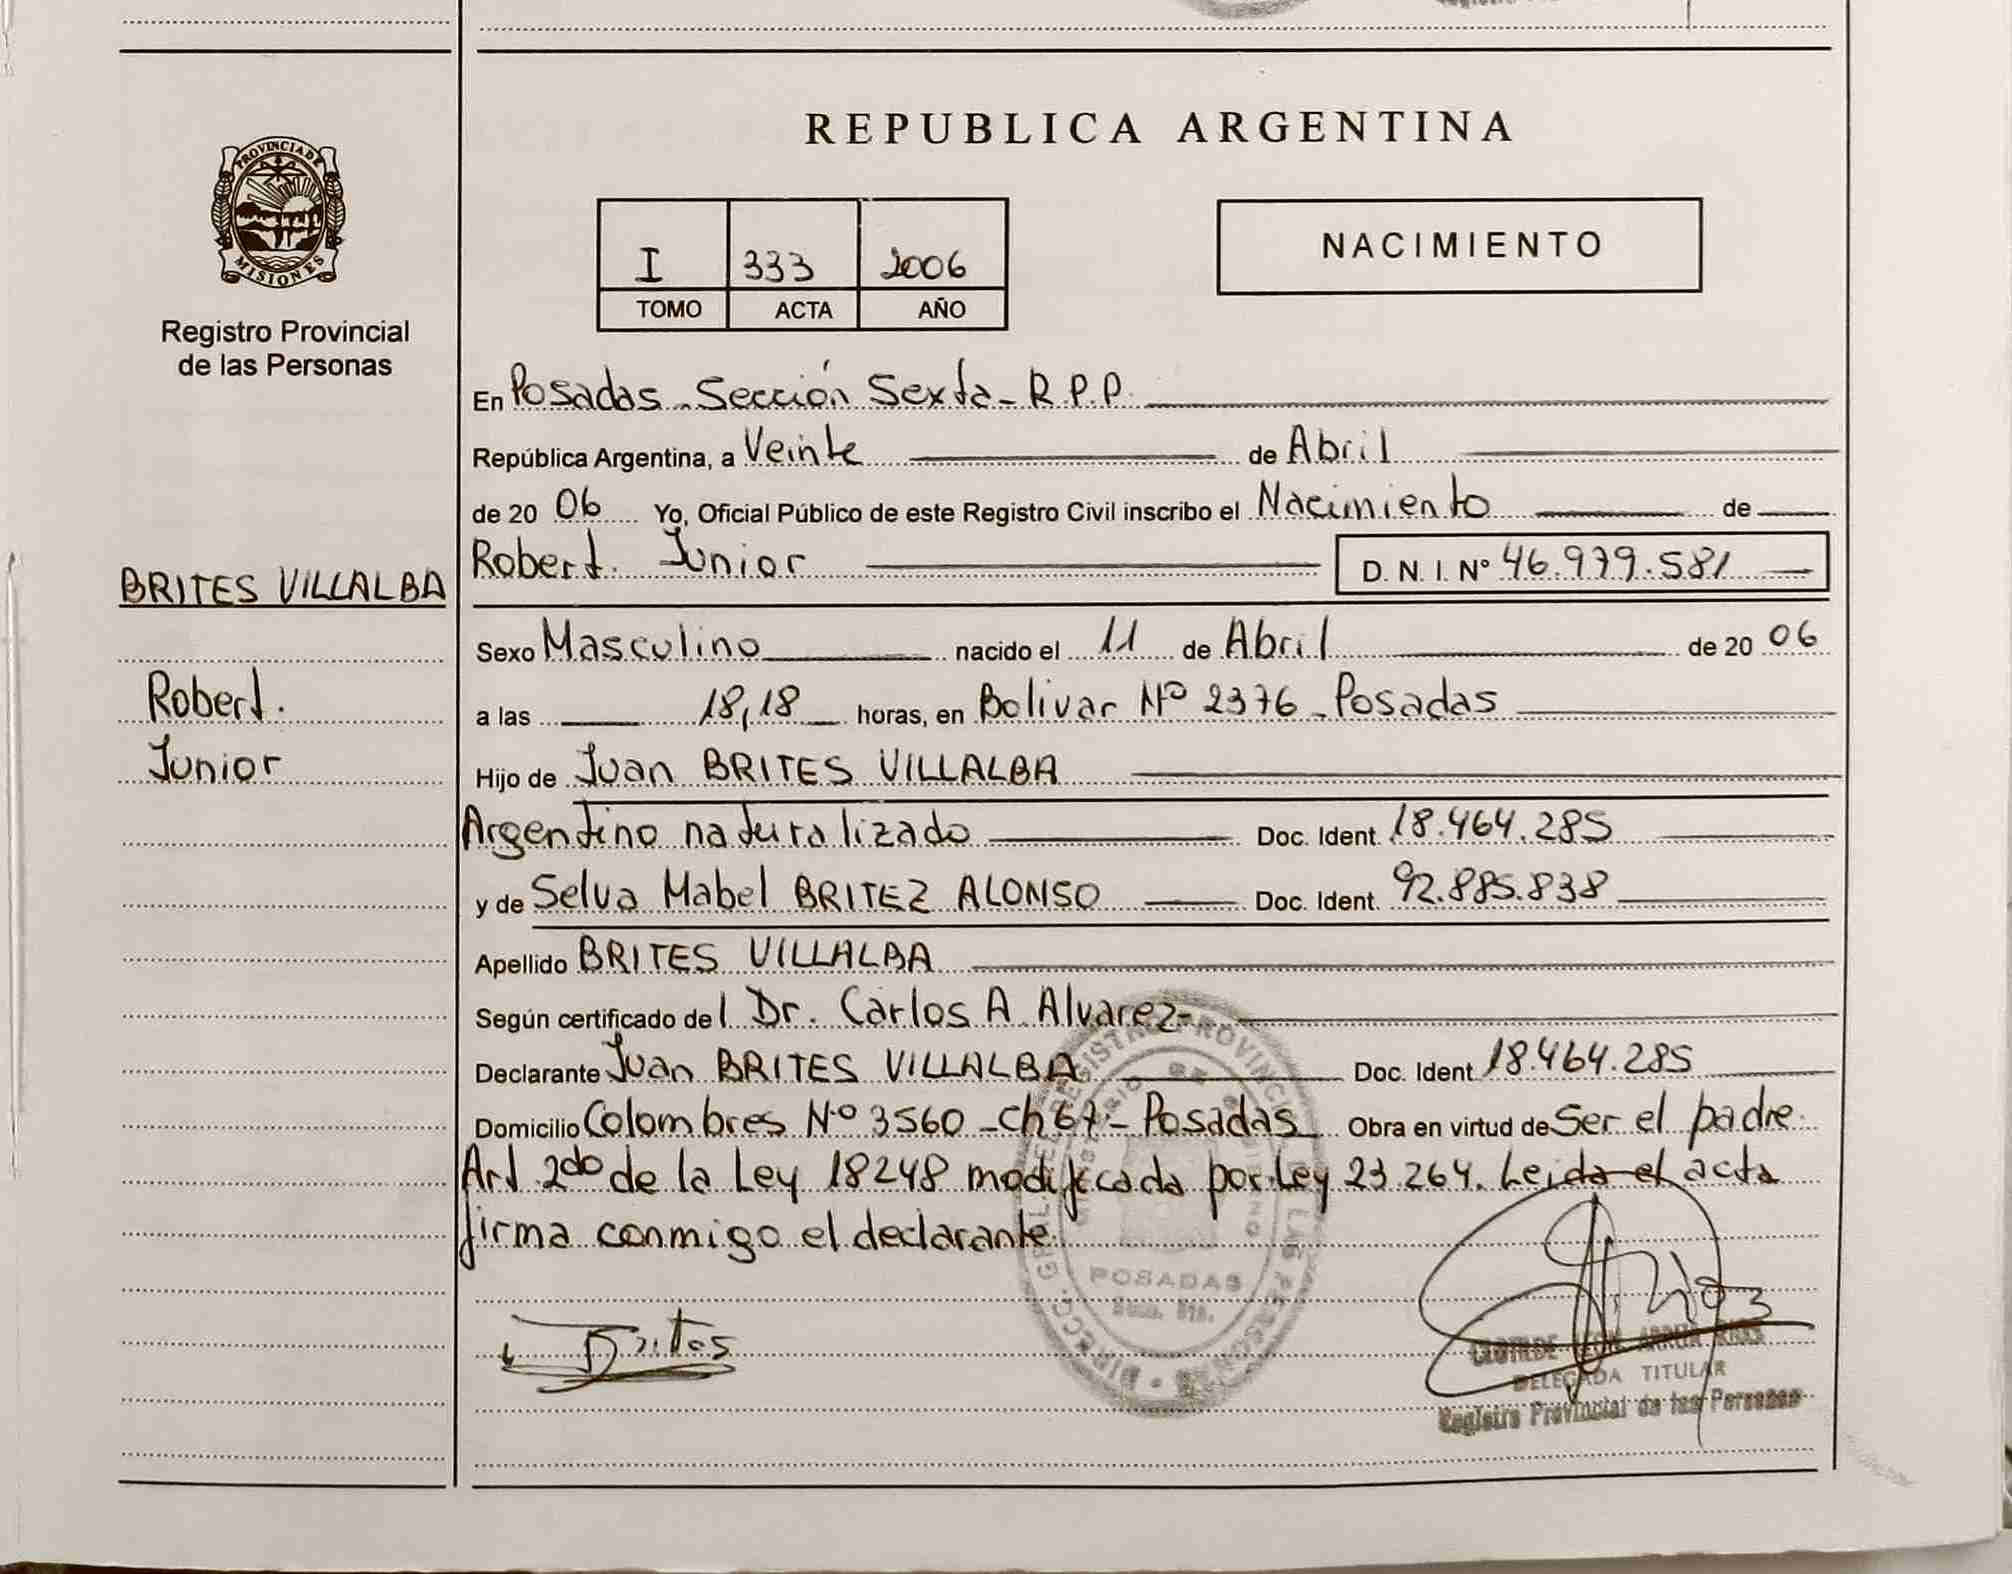 PROVINCIA DE
MISIONES
Registro Provincial
de las Personas
BRITES VILLALBA
Robert.
Junior
REPUBLICA ARGENTINA
I 333 2006
TOMO ACTA AÑO
NACIMIENTO
En Posadas - Sección Sexta - R.P.P.
República Argentina, a Veinte de Abril
de 20 06 Yo, Oficial Público de este Registro Civil inscribo el Nacimiento de
Robert. Junior D. N. I. Nº 46.979.581
Sexo Masculino nacido el 11 de Abril de 20 06
a las 18,18 horas, en Bolivar Nº 2376 - Posadas
Hijo de Juan BRITES VILLALBA
Argentino naturalizado Doc. Ident. 18.464.285
y de Selva Mabel BRITEZ ALONSO Doc. Ident. 92.885.838
Apellido BRITES VILLALBA
Según certificado del Dr. Carlos A. Alvarez-
Declarante Juan BRITES VILLALBA Doc. Ident 18.464.285
Domicilio Colombres Nº 3560 - ch 67 - Posadas Obra en virtud de Ser el padre.
Art 2do de la Ley 18248 modificada por Ley 23.264. Leida el acta
firma conmigo el declarante.
POSADAS
Brites
DELEGADA TITULAR
Registro Provincial de las Personas